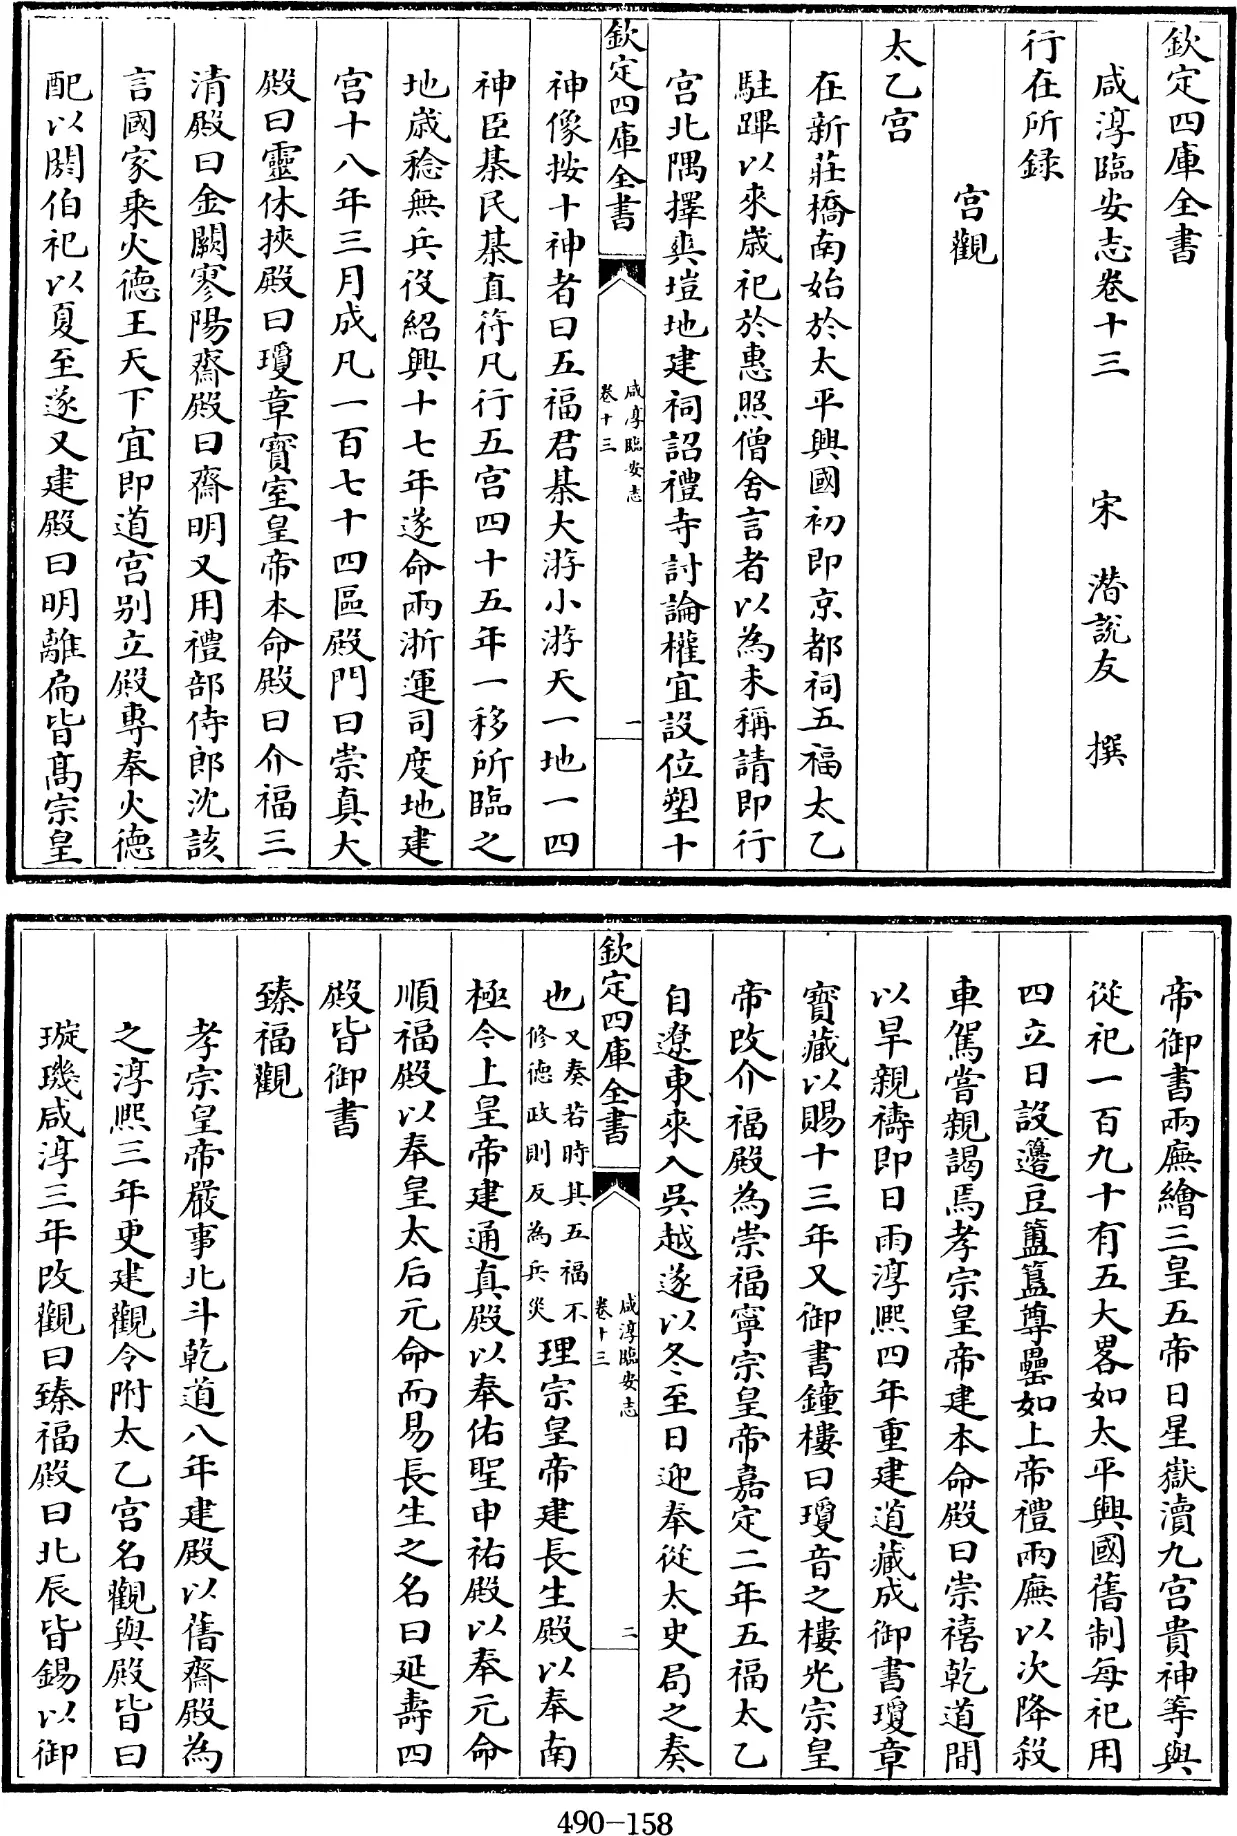 欽定四庫全書
咸淳臨安志卷十三　宋　潛說友　撰
行在所録
宫觀
太乙宫
在新莊橋南始於太平興國初即京都祠五福太乙
駐蹕以來歲祀於惠照僧舍言者以為未稱請即行
宫北隅擇爽塏地建祠詔禮寺討論權宜設位塑十
欽定四庫全書
咸淳臨安志
卷十三
一
神像按十神者曰五福君綦大游小游天一地一四
神臣綦民綦直符凡行五宫四十五年一移所臨之
地歲稔無兵役紹興十七年遂命兩浙運司度地建
宫十八年三月成凡一百七十四區殿門曰崇真大
殿曰靈休挾殿曰瓊章寳室皇帝本命殿曰介福三
清殿曰金闕寥陽齋殿曰齋明又用禮部侍郎沈該
言國家乘火德王天下宜即道宫别立殿專奉火德
配以閼伯祀以夏至遂又建殿曰明離扁皆髙宗皇
帝御書兩廡繪三皇五帝日星嶽瀆九宫貴神等與
從祀一百九十有五大畧如太平興國舊制每祀用
四立日設籩豆簠簋尊罍如上帝禮兩廡以次降殺
車駕嘗親謁焉孝宗皇帝建本命殿曰崇禧乾道間
以旱親禱即日雨淳熙四年重建道藏成御書瓊章
寳藏以賜十三年又御書鐘樓曰瓊音之樓光宗皇
帝改介福殿為崇福寧宗皇帝嘉定二年五福太乙
自遼東來入吳越遂以冬至日迎奉從太史局之奏
欽定四庫全書
咸淳臨安志
卷十三
二
也又奏若時其五福不修德政則反為兵災理宗皇帝建長生殿以奉南
極今上皇帝建通真殿以奉佑聖申祐殿以奉元命
順福殿以奉皇太后元命而易長生之名曰延壽四
殿皆御書
臻福觀
孝宗皇帝嚴事北斗乾道八年建殿以舊齋殿為
之淳熙三年更建觀令附太乙宫名觀與殿皆曰
璇璣咸淳三年改觀曰臻福殿曰北辰皆錫以御
490-158